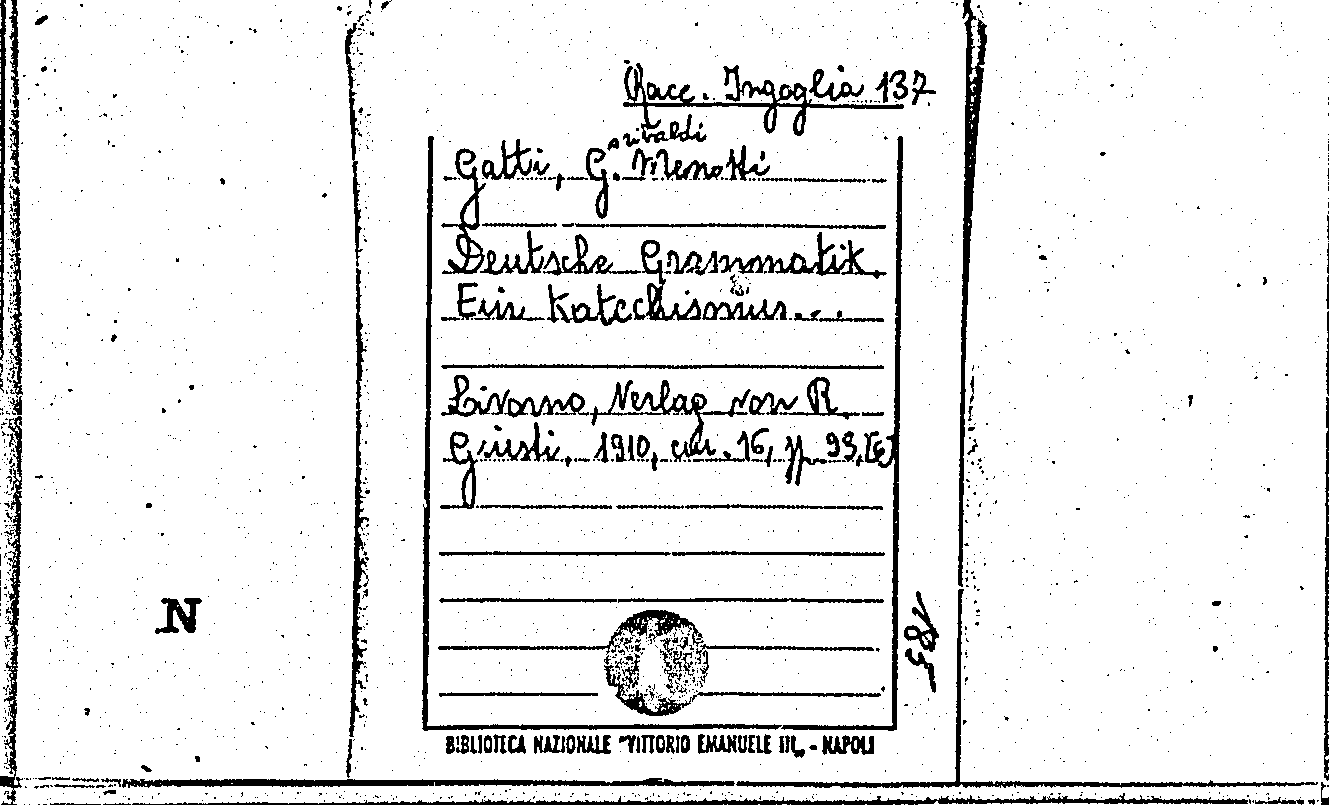 Racc. Ingoglia 137
aribaldi
Gatti, G. Menotti
Deutsche Grammatik.
Ein Katechismus...
Livorno, Verlag von R.
Giusti, 1910, in. 16, pp. 93,
N
183
BIBLIOTECA NAZIONALE "VITTORIO EMANUELE III„ - NAPOLI